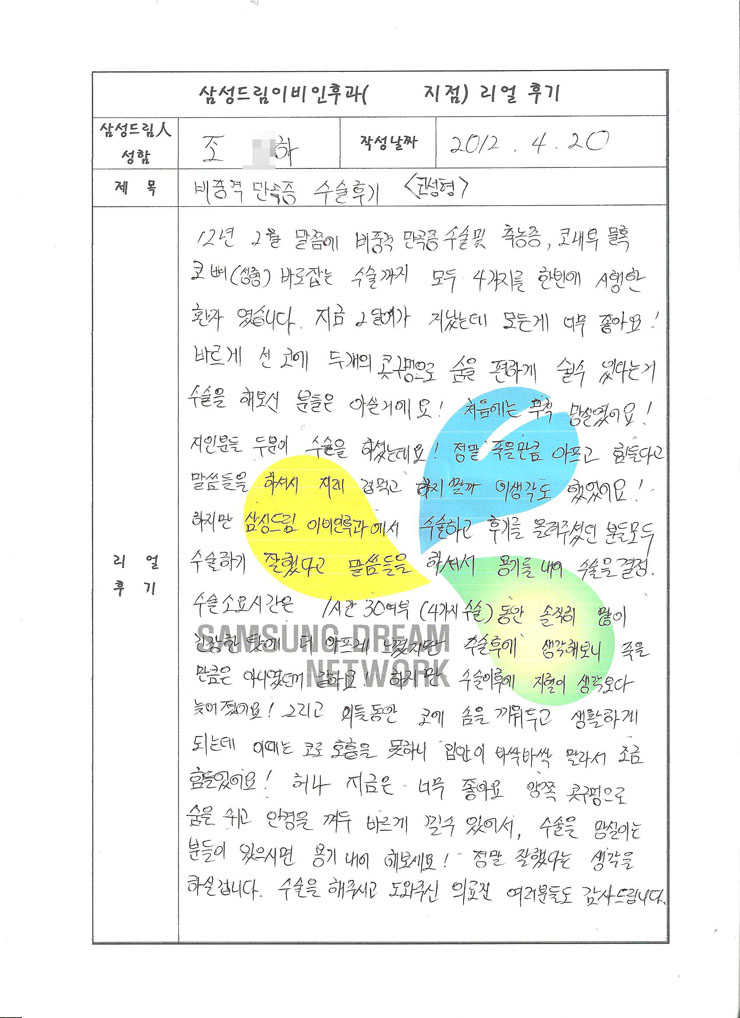 삼성드림이비인후과( 지점) 리얼 후기
삼성드림人 성함
조 하
작성날짜
2012. 4. 20
제 목
비중격 만곡증 수술후기 <코성형>
리얼 후기
12년 2월 말쯤에 비중격 만곡증 수술및 축농증, 코내부 물혹
코뼈(성형) 바로잡는 수술까지 모두 4가지를 한번에 시행한
환자 였습니다. 지금 2월여가 지났는데 모든게 너무 좋아요!
바르게 선 코에 두개의 콧구멍으로 숨을 편하게 쉴수 있다는거
수술을 해보신 분들은 아실거에요! 처음에는 무척 망설였어요!
지인분들 두분이 수술을 하셨는데요! 정말 죽을만큼 아프고 힘들다고
말씀들을 하셔서 지레 겁먹고 하지말까 이생각도 했었어요!
하지만 삼성드림 이비인후과에서 수술하고 후기를 올려주셨던 분들모두
수술하기 잘했다고 말씀들을 하셔서 용기를 내어 수술을 결정.
수술 소요시간은 1시간 30여분 (4가지 수술) 동안 솔직히 많이
긴장한 탓에 더 아프게 느꼈지만 수술후에 생각해보니 죽을
만큼은 아니였던거 같아요! 하지만 수술이후에 지혈이 생각보다
늦어 졌어요! 그리고 이틀동안 코에 솜을 끼워두고 생활하게
되는데 이때는 코로 호흡을 못하니 입안이 바싹바싹 말라서 조금
힘들었어요! 허나 지금은 너무 좋아요 양쪽 콧구멍으로
숨을 쉬고 안경을 껴두 바르게 낄수 있어서, 수술을 망설이는
분들이 있으시면 용기 내어 해보세요! 정말 잘했다는 생각을
하실겁니다. 수술을 해주시고 도와주신 의료진 여러분들도 감사드립니다.
SAMSUNG DREAM
NETWORK